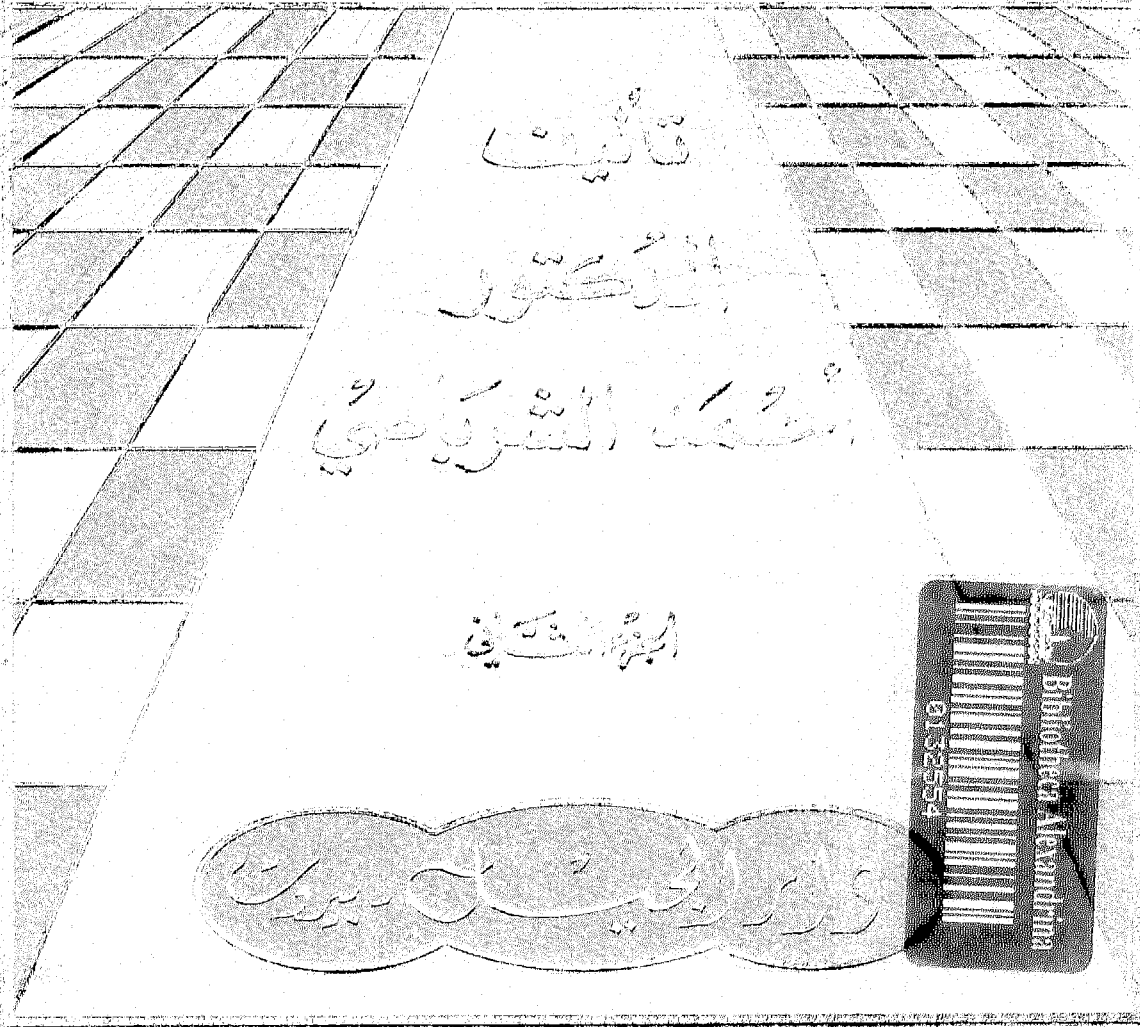 تأليف
الدكتور
أحمد الشرباصي
الجزء الثاني
دار الجيل - بيروت
Bibliotheca Alexandrina